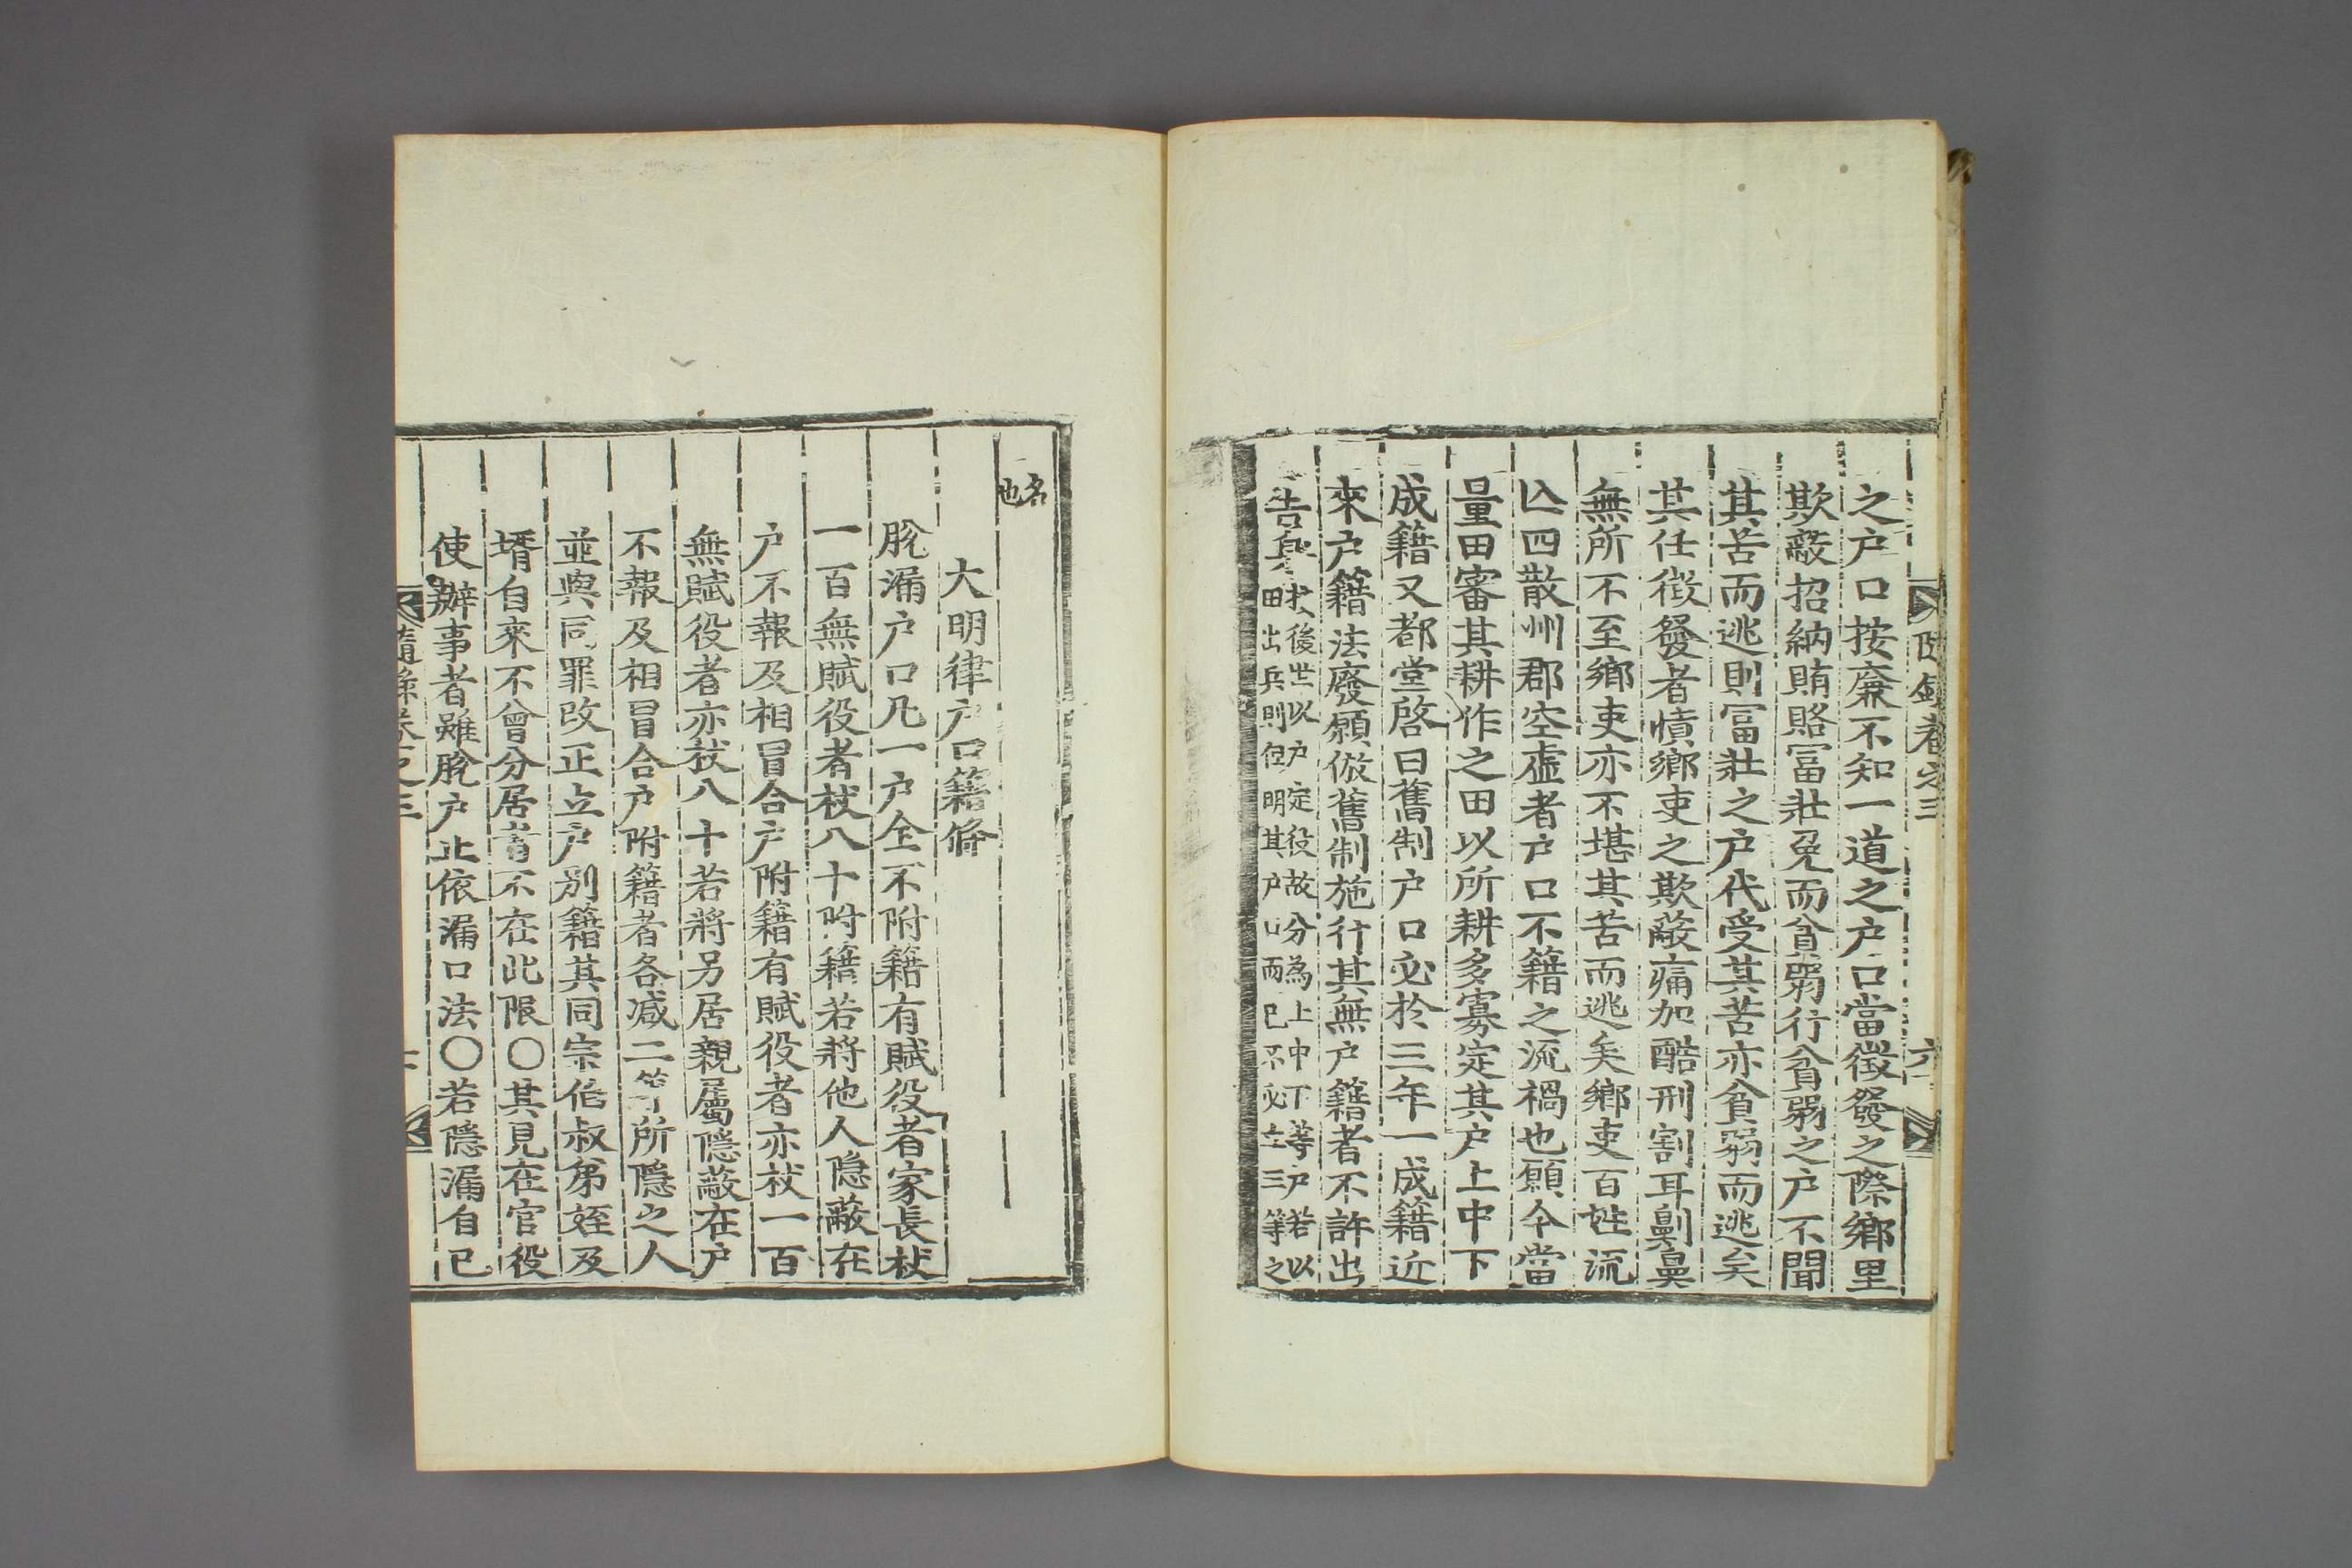 之户口按廉不知一道之户口當徵發之際鄉里
欺蔽招納賄賂冨壯免而貧弱行貧弱之户不聞
其苦而逃則冨壯之户代受其苦亦貧弱而逃矣
其任徵發者憤鄉吏之欺蔽痛加酷刑割耳劓鼻
無所不至鄉吏亦不堪其苦而逃矣鄉吏百姓流
亾四散州郡空虛者户口不籍之流禍也願今當
量田審其耕作之田以所耕多寡定其户上中下
成籍又都堂啓曰舊制户口必於三年一成籍近
來户籍法廢願倣舊制施行其無户籍者不許出
告身
後世以户定役故分為上中下等户若以
田出兵則但明其户口而已不必立三等之
名
也
大明律户口籍條
脫漏户口凡一户全不附籍有賦役者家長杖
一百無賦役者杖八十附籍若將他人隱蔽在
户不報及相冒合户附籍有賦役者亦杖一百
無賦役者亦杖八十若將另居親屬隱蔽在户
不報及相冒合户附籍者各减二等所隱之人
並與同罪改正立户别籍其同宗伯叔弟姪及
壻自來不曾分居者不在此限○其見在官役
使辦事者雖脫户止依漏口法○若隱漏自已
隨錄卷之三